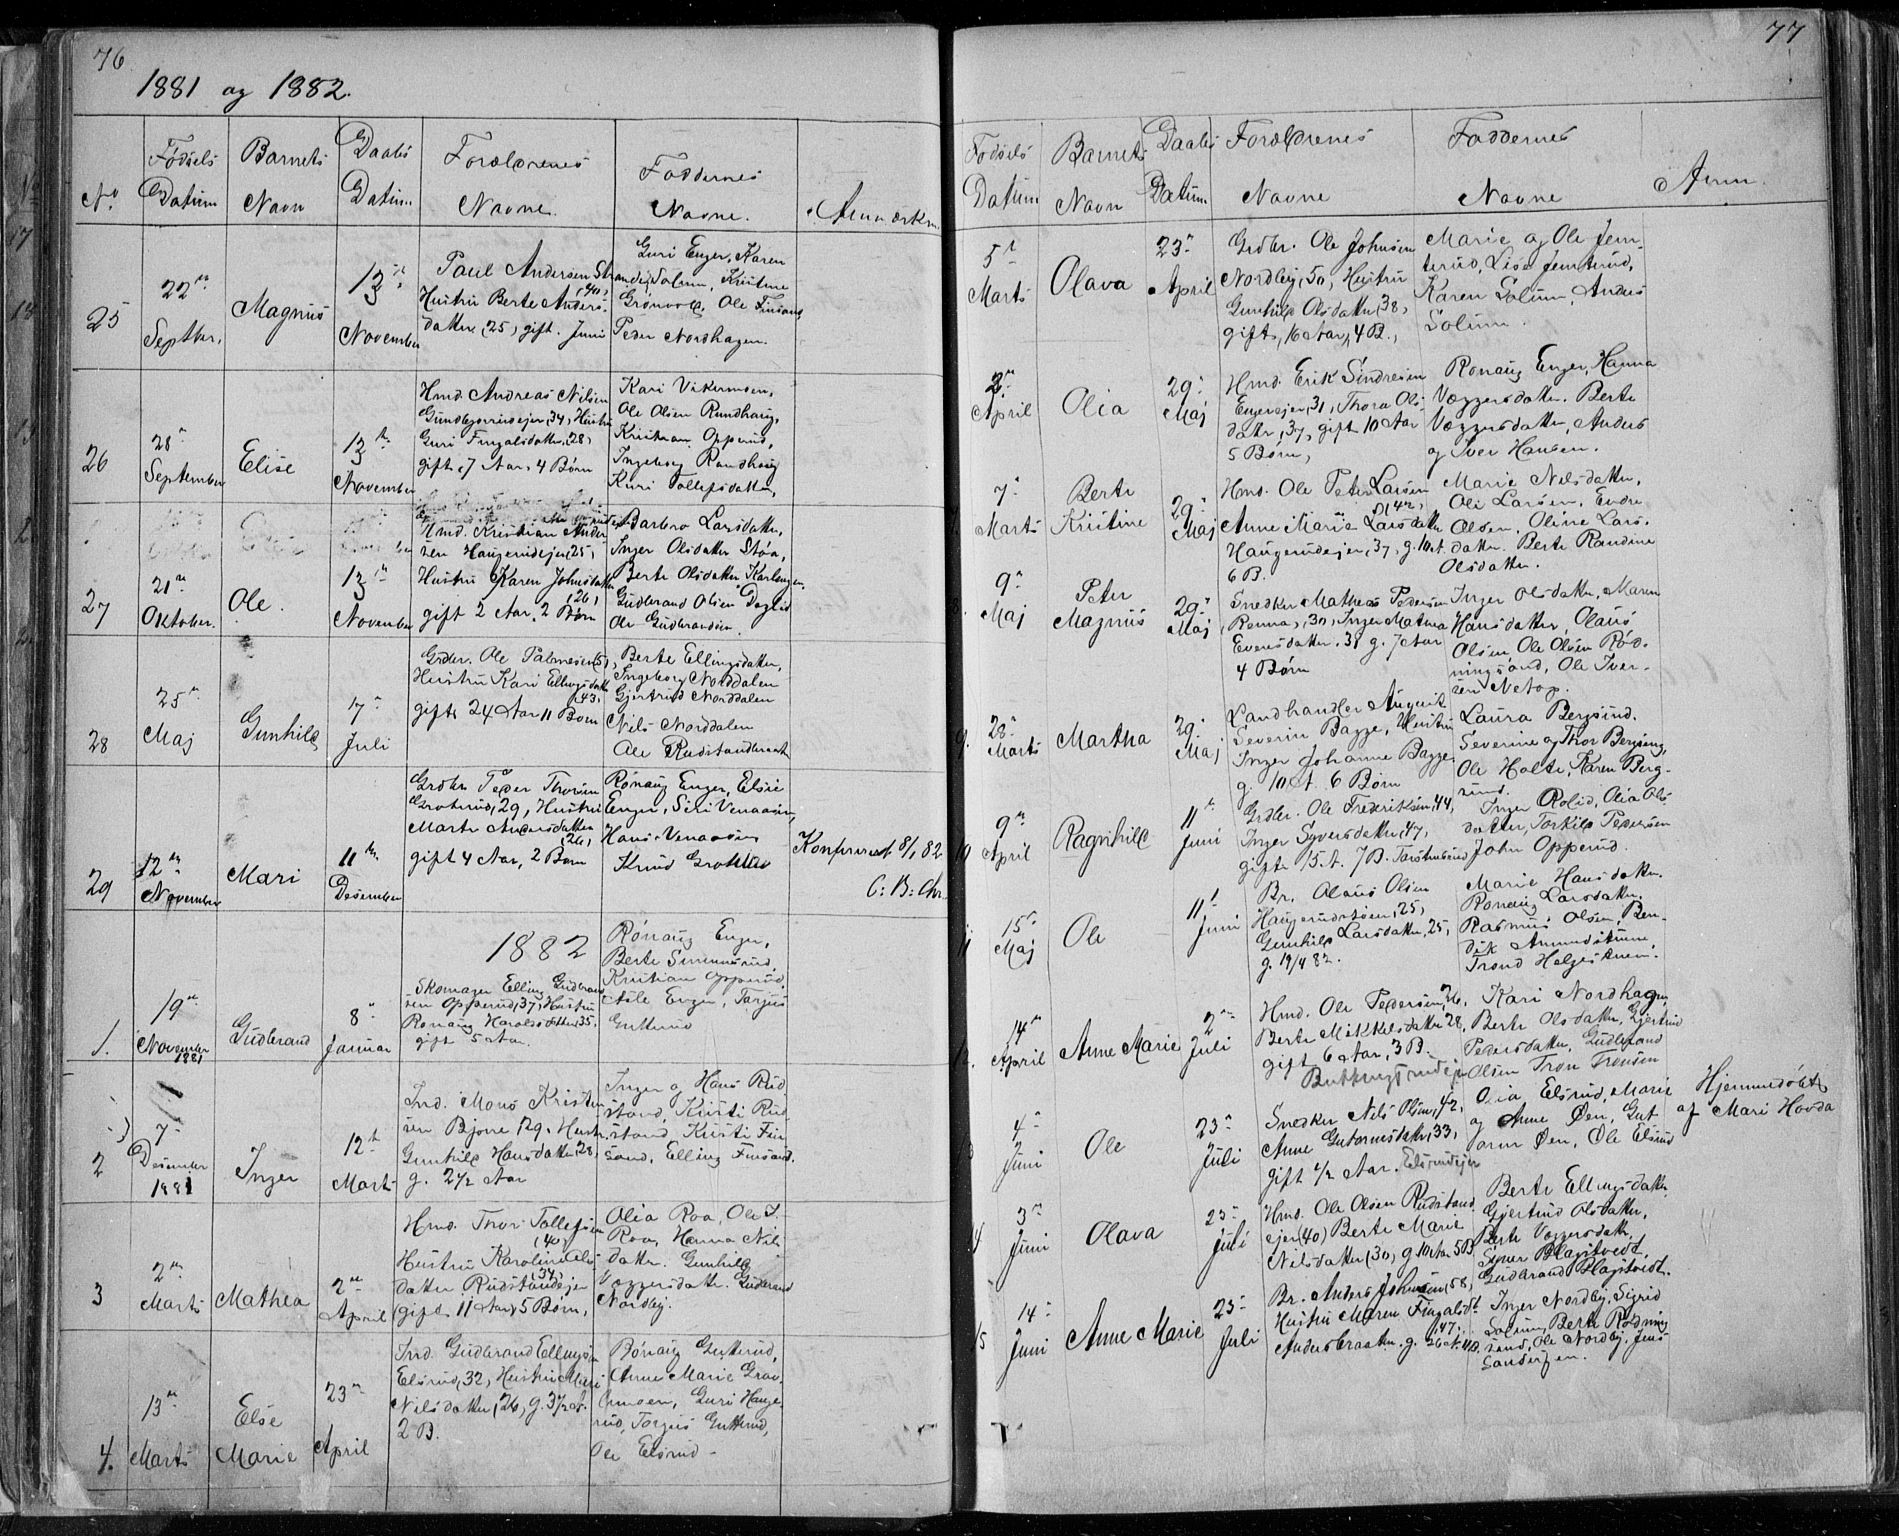 76
1881 og 1882.
No.
Fødsels Datum
Barnets Navn
Daabs Datum
Forældrenes Navne.
Faddernes Navne.
Anmærkn.
25
22de Septbr.
Magnus
13de November
Paul Andersen
Hustru Berte Anders-
datter (25) gift. Juni
(40)
Guri Enger, Karen
Solum, Kristine
Grønvold, Ole Finsand
Peder Nordhagen.
26
28de September
Elise
13de November
Hmd. Andreas Nilsen
34, Hustru
Guri Fingalsdatter, 28,
gift 7 Aar, 4 Børn
Kari Vikermoen,
Ole Olsen Rundhaug,
Kristian Opperud,
Ingeborg Rundhaug
Kari Tollefsdatter,
27
21de Oktober.
Ole.
13de November
Hmd. Kristian Ander-
sen Haugerudejer, 25,
Hustru Karen Johnsdatter
(26)
gift 2 Aar, 2 Børn
Barbro Larsdatter,
Inger Olsdatter Støa,
Berte Olsdatter Karlsengen,
Gudbrand Olsen
Ole Gudbrandsen.
28
25de Maj
Gunhild
7de Juli
Grdbr. Ole Palmesen
Hustru Kari Ellingsdatter
43,
gift 24 Aar 11 Børn
Berte Ellingsdatter,
Ingeborg Norddalen
Gjertrud Norddalen
Nils Norddalen
Ole Rudstandbraat
29
12de November
Mari
11te Desember
Grdbr Peder Thorsen
Grøterud, 29, Hustru
Marte Andersdatter
(26)
gift 4 Aar, 2 Børn
Rønaug Enger, Elsie
Enger, Siri Venaasen,
Hans Venaasen
Knud Grøterud
8/1 82
1882
1.
19de November 1881
Gudbrand
8de Januar
Skomager Elling Gudbrand-
sen Opperud, 37, Hustru
Rønaug Haroldsdatter, 35,
gift 5 Aar.
Rønaug Enger,
Berte
Kristian Opperud,
Asle Enger, Torjus
Gutterud
2
7de Desember 1881
Inger
12te Marts
Ind. Mons Kristen-
sen Bjøre 29, Hustru
Gunhild Hansdatter, 28,
g. 2 1/2 Aar
Inger og Hans Rud-
stand, Kirsti Rud-
stand, Kirsti Fin-
sand, Elling Finsand.
3
2de Marts
Mathea
2de April
Hmd. Thor Tollefsen
(40)
Hustru Karoline Ols-
datter Rudstandejer
(34)
gift 11 Aar, 5 Børn,
Olia Roa, Ole T.
Roa, Hanna Nils-
datter. Gunhild
Væggersdatter. Gudbrand
Nordby.
4.
13de Marts
Else Marie
23de April
Ind. Gudbrand Ellingsen
Elsrud, 32, Hustru Mari
Nilsdatter, 26, g. 3 1/2 A.
2 B.
Rønaug Gutterud,
Anne Marie Grav-
Guri Hauge-
rud, Torjus Gutterud,
Ole Elsrud
77
Fødsels Datum
Barnets Navn
Daabs Datum
Forældrenes Navne
Faddernes Navne
Anm.
5te Marts
Olava
23de April
Grdbr. Ole Johnsen
Nordby, 50, Hustru
Gunhild Olsdatter, 38,
gift, 16 Aar, 4 B.,
Marie og Ole Jem-
terud, Lise Jemterud,
Karen Solum, Anders
Solum.
2de April
Olia
29de Maj
Hmd. Erik Sindresen
Engerejer, 31, Thora Ols-
datter, 37, gift 10 Aar
5 Børn,
Rønaug Enger, Hanna
Væggersdatter. Berte
Væggersdatter, Anders
og Iver Hansen.
7de Marts
Berte Kristine
29de Maj
Hmd. Ole Peter Larsen
(42)
Anne Marie Larsdatter
Haugerudejer, 37, g. 10 A.
6 B.
Marie Nilsdatter,
Ole Larsen, Endre
Olsen, Oline Lars-
datter. Berte Randine
Olsdatter.
9de Maj
Peter Magnus
29de Maj
Snedker Mathias Pedersen
Renna, 30, Inger Mathea
Eversdatter, 31 g. 7 Aar
4 Børn
Inger Olsdatter, Maren
Hansdatter, Olaus
Olsen Ole Olsen Rød-
ningsand, Ole Iver-
sen Netop.
9.
28de Marts
Martha
29de Maj
Landhandler August
Severin Bagge, Hustru
Inger Johanne Bagge
g. 10 A. 6 Børn
Laura Bergsund.
Severine og Thor Bergseng,
Ole Holte, Karen Berg-
sund.
10
9de April
Ragnhild
11te Juni
Grdbr. Ole Frederiksen, 44,
Inger Syversdatter, 47,
gift 15 A. 7 B.
Inger Rolid, Olia Ols-
datter, Torkild Pedersen
John Opperud.
11
15de Maj
Ole
11te Juni
Br. Olaus Olsen
25,
Gunhild Larsdatter, 25,
g. 19/4 82.
Marie Hansdatter.
Rønaug Larsdatter.
Rasmus Olsen, Ben-
dik
Trond
14de April
Anne Marie
2de Juli
Hmd. Ole Pedersen, 26,
Berte Mikkelsdatter 28,
gift 6 Aar, 3 B.
Kari Nordhagen,
Berte Olsdatter, Gjertrud
Pedersdatter, Gudbrand
Olsen Tron Tronsen
4de Juni
Ole
23de Juli
Snedker Nils Olsen, 42,
Anne Gutormsdatter, 33,
gift 1/2 Aar. Elsrudejer
Olia Elsrud, Marie
og Anne Øen, Gut-
orm Øen, Ole Elsrud
Hjemmedøbt
af Mari Hovda
3de Juni
Olava
23de Juli
Hmd. Ole Olsen Rudstand-
ejer (40) Berte Marie
Nilsdatter (30), g 10 Aar 5 B
Berte Ellingsdatter
Gjertrud Olsdatter,
Berte Væggersdatter,
Syver Plagstvedt,
Gudbrand Plagstvedt.
15
14de Juni
Anne Marie
23de Juli
Br. Anders Johnsen, 58,
Hustru Maren Fingalsdt.
47.
Andersbraaten. g. 26 A.
Inger Nordby, Sigrid
Solum, Berte Rødning-
sand, Ole Nordby, Jens